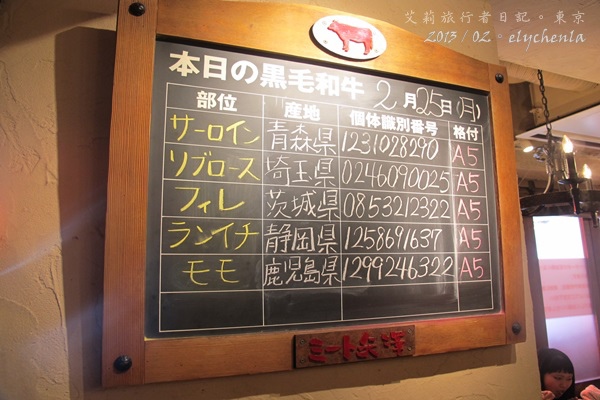 艾莉旅行者日記。東京
2013/02。elychenla
本日の黒毛和牛 2月25日(月)
部位 産地 個体識別番号 格付
サーロイン 青森県 1231028290 A5
リブロース 埼玉県 0246090025 A5
フィレ 茨城県 0853212322 A5
ランイチ 静岡県 1258691637 A5
モモ 鹿児島県 1299246322 A5